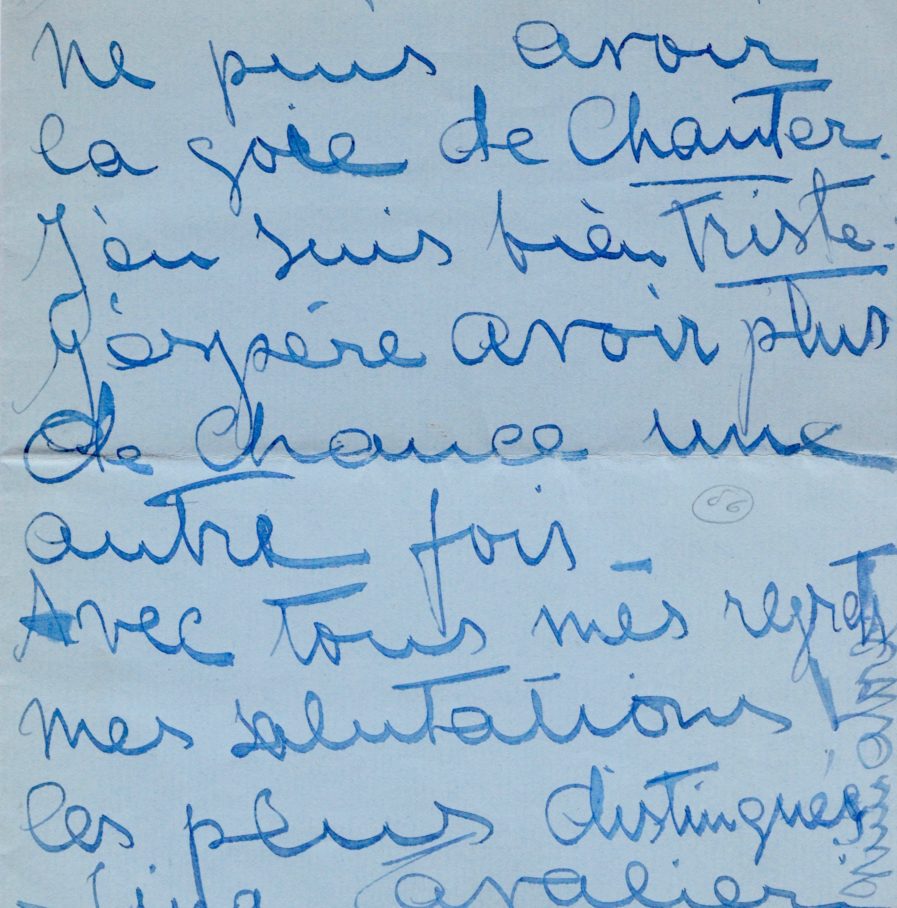 ne puis avoir
la goie de Chanter.
J'en suis bien Triste.
J'éspére avoir plus
de Chance une
autre fois_
Avec tous mes regrets
mes salutations
les plus distingués
Lina Cavalieri